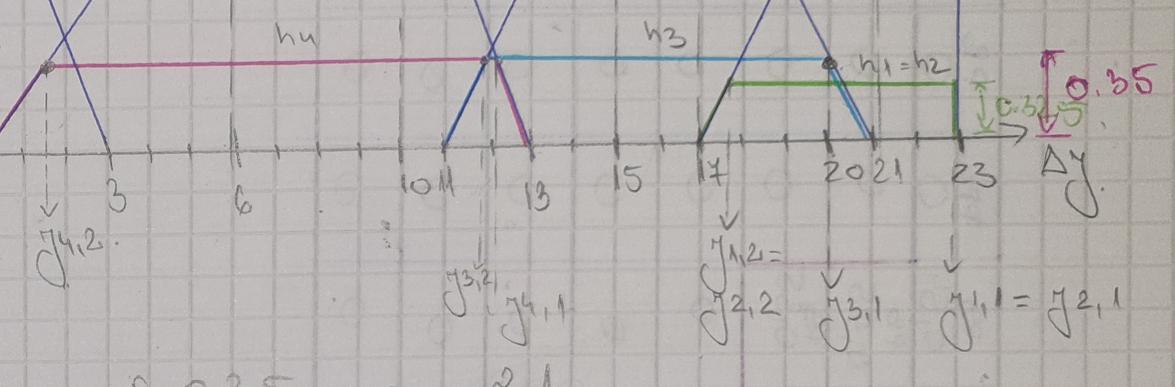 h4 h3
h1=h2 0.35
0.325
3 6 10 11 13 15 17 20 21 23 Δy
y4,2 y3,2 y4,1 y1,2= y2,2 y3,1 y1,1 = y2,1